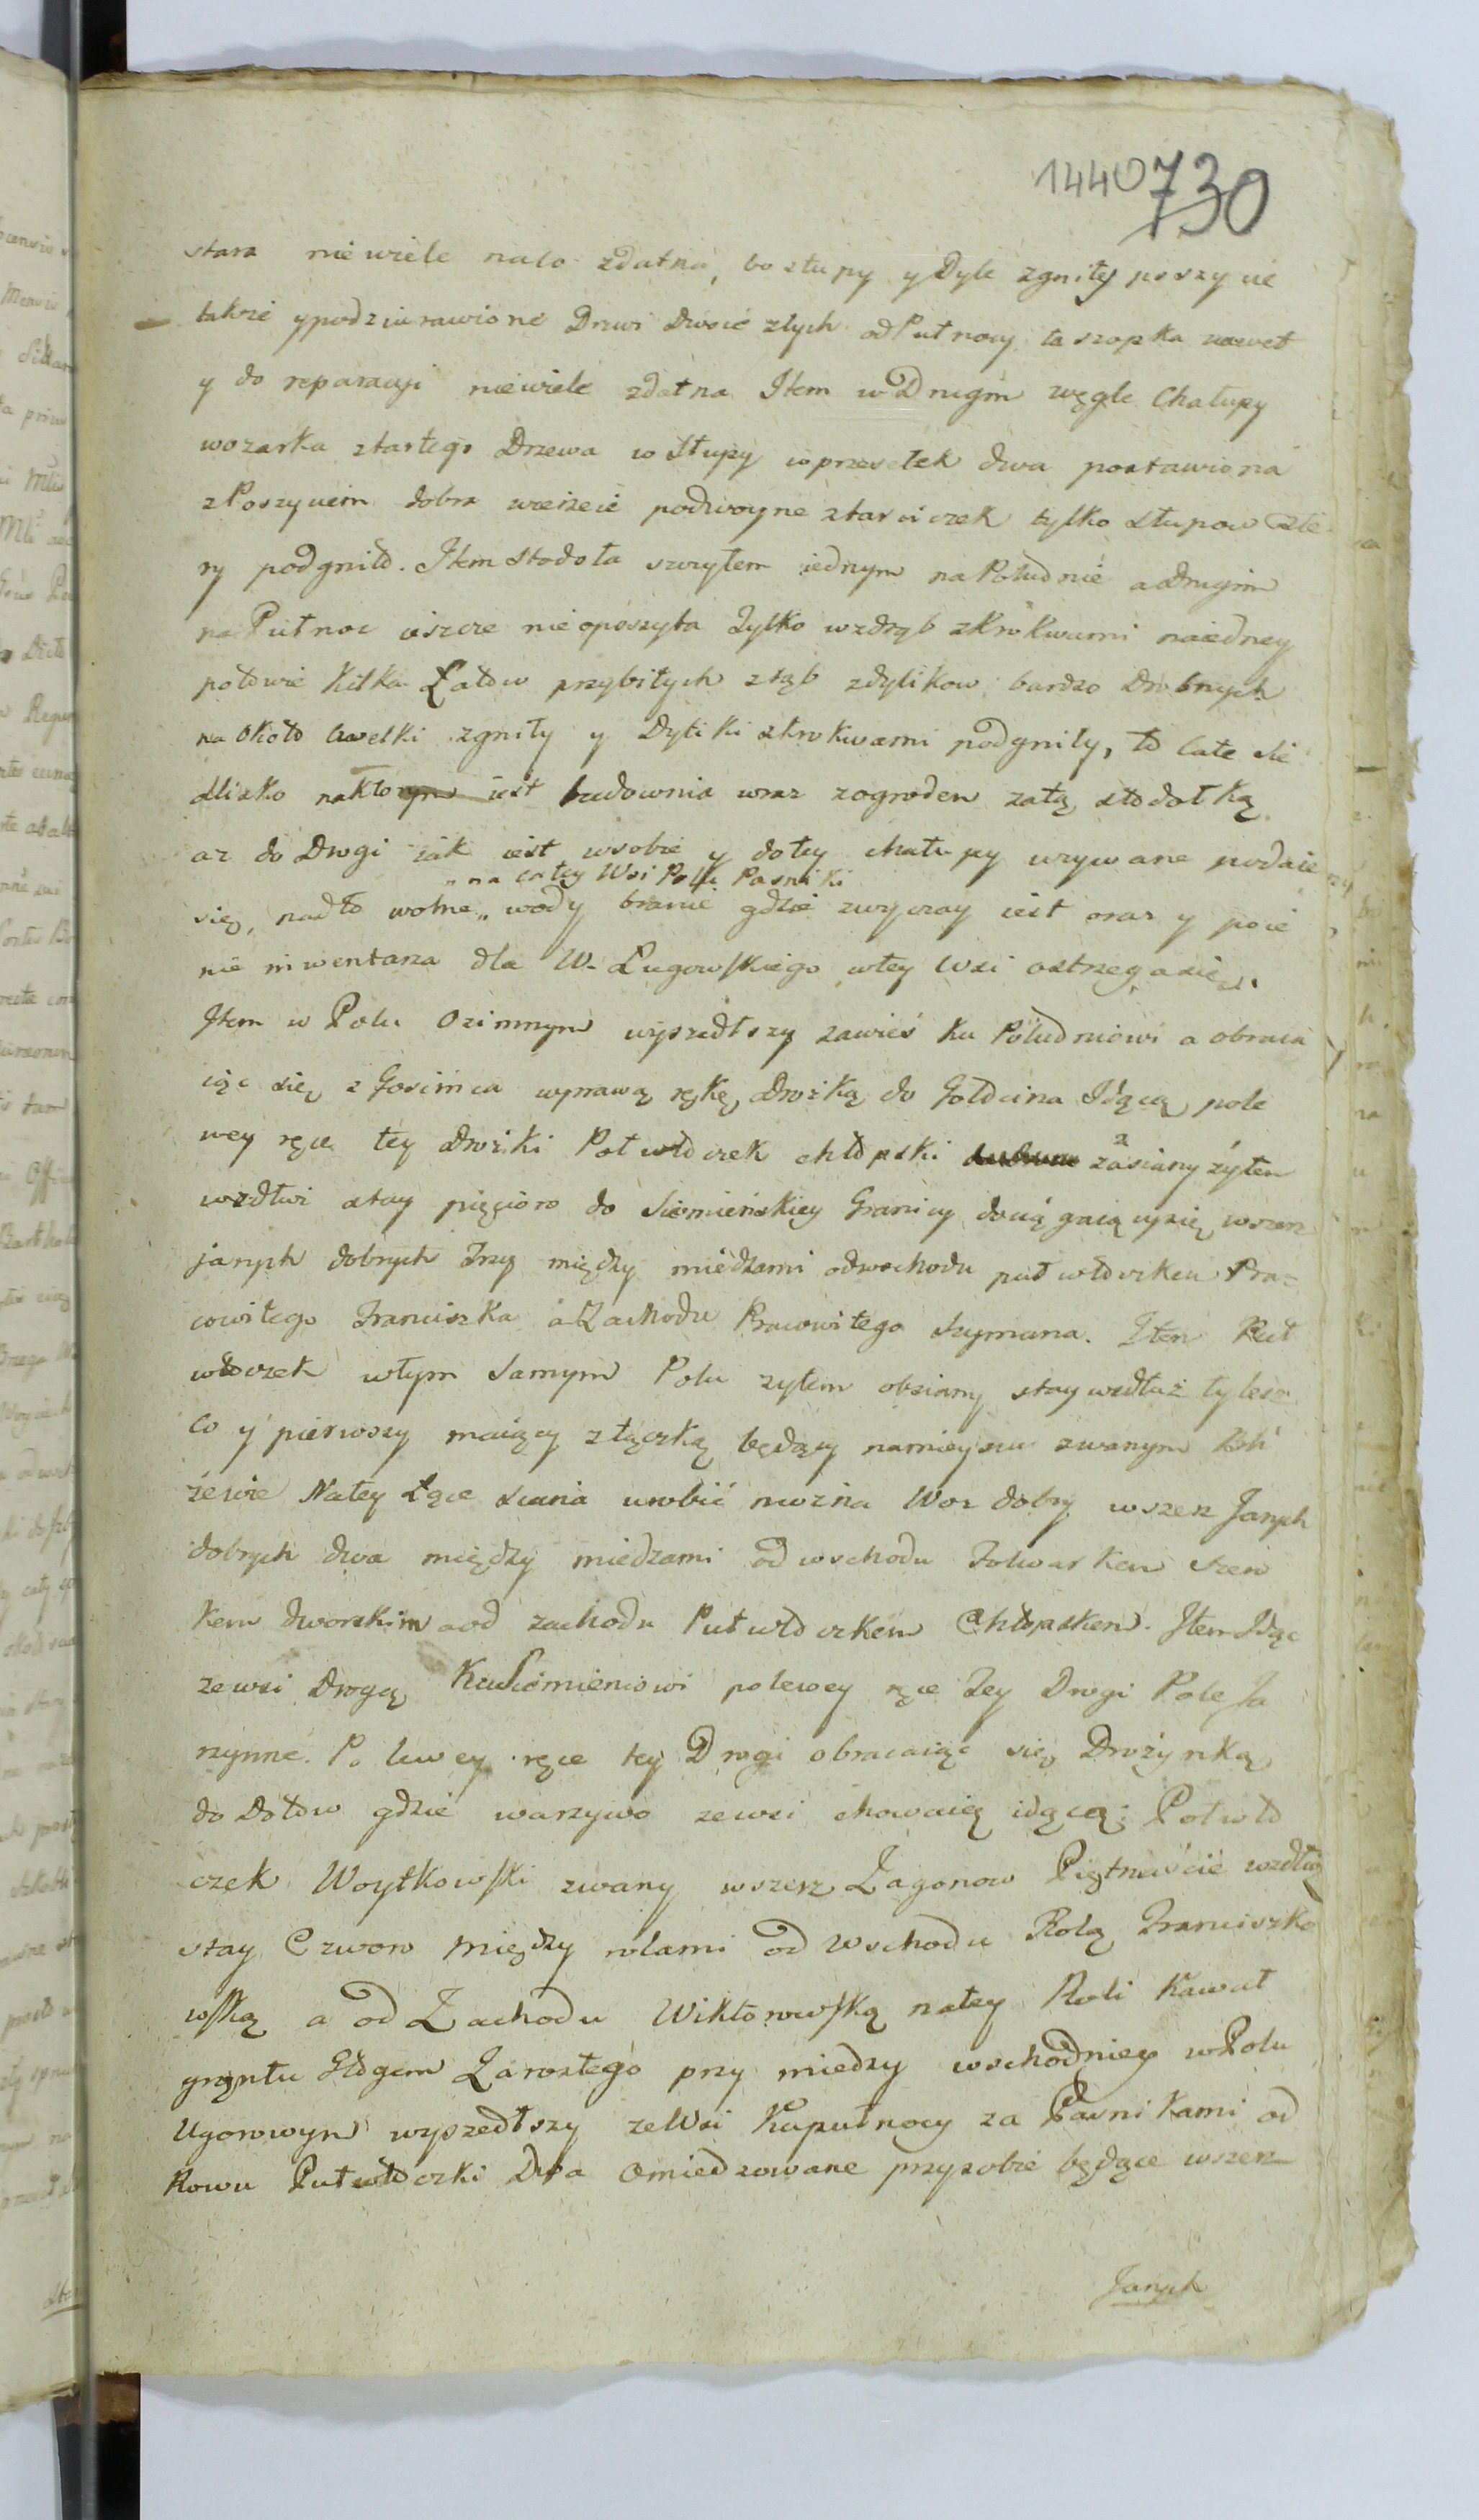 1440 730
stara nie wiele naco zdatna, bo słupy y Dyle zgniły poszycie
także ypodziurawione Drzwi dwoie złych odPułnocy, ta szopka nawet
y do reparacyi niewiele zdatna Item w Drugim węgle Chałupy
wozarka ztartego Drzewa w Słupy w przesełek dwa postawiona
zPoszyciem dobra podwoyne ztarciczek tylko słupow czte
ry podgniło. Item Stodoła szczytem iednym naPołudnie aDrugim
naPułnoc ieszcze nie oposzyta Tylko wzdrąb zkrokwami naiedney
połowie kilka Łatow przybitych zrąb zdylikow bardzo drobnych
na około zgniły y Dyliki zkrokwami podgniły, to całe sie
dlisko naktorym iest budownia wraz zogrodem zatą stodołką
az do Drogi iak iest wsobie y dotey chałupy uzywane podaie
„na całey Wsi Polu Pasniki
się, nadto wolne „ wody branie gdzie zwyczay iest oraz y poie
nie inwentarza dla W. Ługowskiego wtey Wsi ostrzega się.
Item w Polu Ozimnym wyszedłszy zawieś ku Południowi a obraca
iąc się z Goscińca wprawą rękę, drożką do Gołocina Idącą, pole
wey ręce tey drożki Połwłoczek chłopski zasiany żytem
wzdłuż stay pięcioro do Siemieńskiey Granicy dociągaiący się wszerz
janych dobrych Trzy między miedzami odwschodu pułwłoczkiem Pra-
cowitego Franciszka aZachodu Pracowitego Szymana. Item Puł
włoczek wtym Samym Polu zytem obsiany stay wzdłuż tyleż
co y pierwszy maiący złączką będący namieyscu zwanym
żewie Natey Łące siana urobić można Woz dobry wszerz Janych
dobrych dwa między miedzami od wschodu Folwarkem
kem dworskim aod zachodu Pułwłoczkiem Chłopskem. Item Idąc
zewsi Drogą KuSiemieniowi polewey ręce Tey Drogi Pole Ja
rzynne. Po lewey ręce tey Drogi obracaiąc się Drożynką
do Dołow gdzie warzywo zewsi chowaią idącą; Połwło
czek Woytkowski zwany wszerz Zagonow Piętnaście wzdłuż
stay Czworo między rolami od Wschodu Rolą Franciszko
wską a od Zachodu Wiktorowską natey Roli Kawał
gręntu Głogiem Zarosłego przy miedzy wschodniey wPolu
Ugorowym wyszedłszy zeWsi Kupułnocy za Pasnikami od
Rowu Pułwłoczki Dwa omiedzowane przysobie będące wszerz
Janych